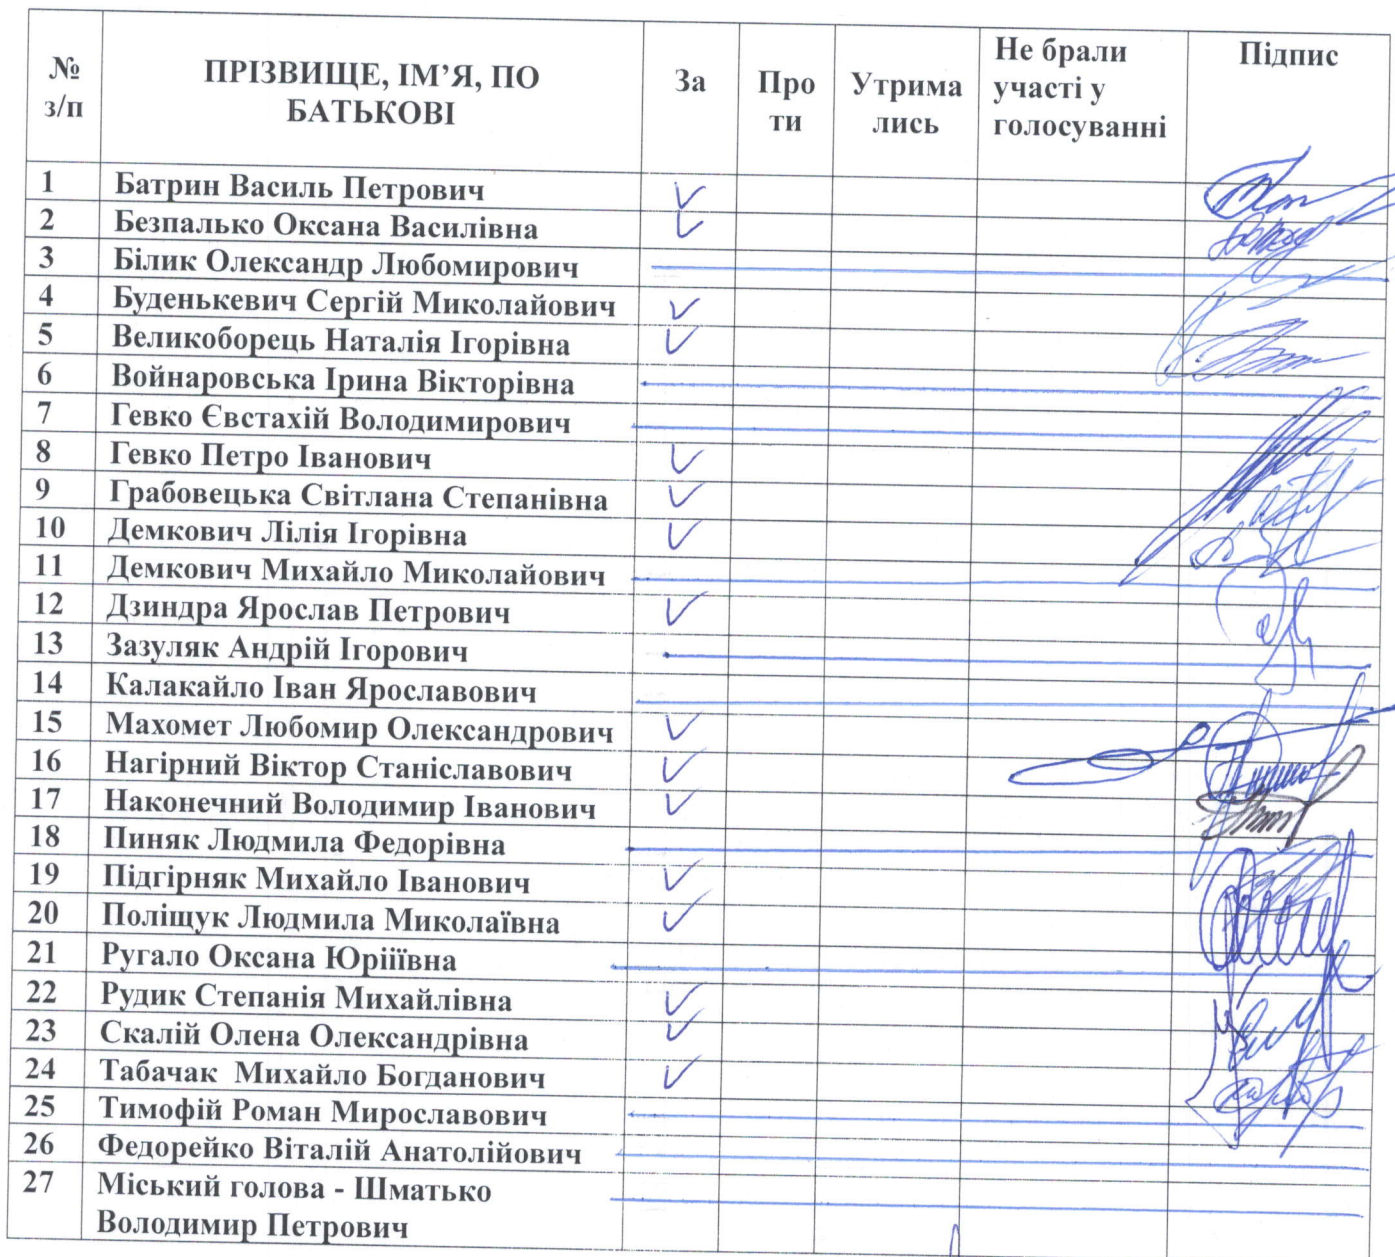 № з/п ПРІЗВИЩЕ, ІМ’Я, ПО БАТЬКОВІ За Про ти Утрима лись Не брали участі у голосуванні Підпис
1 Батрин Василь Петрович ✓
2 Безпалько Оксана Василівна ✓
3 Білик Олександр Любомирович
4 Буденькевич Сергій Миколайович ✓
5 Великоборець Наталія Ігорівна ✓
6 Войнаровська Ірина Вікторівна
7 Гевко Євстахій Володимирович
8 Гевко Петро Іванович ✓
9 Грабовецька Світлана Степанівна ✓
10 Демкович Лілія Ігорівна ✓
11 Демкович Михайло Миколайович
12 Дзиндра Ярослав Петрович ✓
13 Зазуляк Андрій Ігорович
14 Калакайло Іван Ярославович
15 Махомет Любомир Олександрович ✓
16 Нагірний Віктор Станіславович ✓
17 Наконечний Володимир Іванович ✓
18 Пиняк Людмила Федорівна
19 Підгірняк Михайло Іванович ✓
20 Поліщук Людмила Миколаївна ✓
21 Ругало Оксана Юріїівна
22 Рудик Степанія Михайлівна ✓
23 Скалій Олена Олександрівна ✓
24 Табачак Михайло Богданович ✓
25 Тимофій Роман Мирославович
26 Федорейко Віталій Анатолійович
27 Міський голова - Шматько
Володимир Петрович